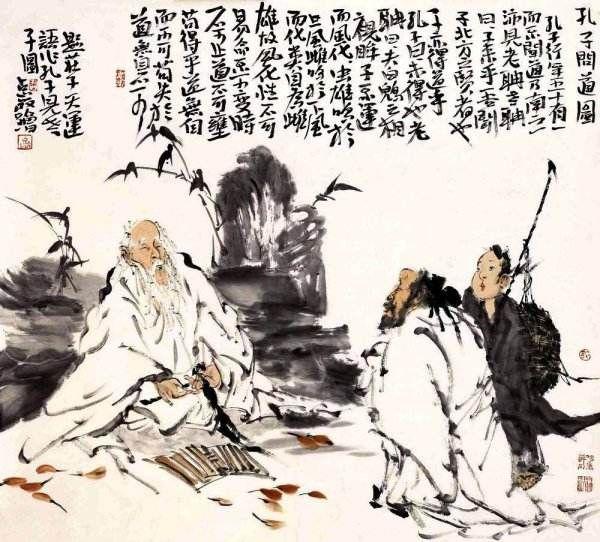 孔子問道圖
孔子行年五十有一
而不聞道乃南之
沛見老聃老聃
曰子來乎吾聞
子北方之賢者也
子亦得道乎
孔子曰未得也老
聃曰夫白鶂之相
視眸子不運
而風化虫雄鳴於
上風雌鳴於下風
而化類自爲雌
雄故風化性不可
易命不可變時
不可止道不可壅
苟得乎道無自
而不可苟失於
道無自而可
題莊子天運
語作孔子見老
子圖